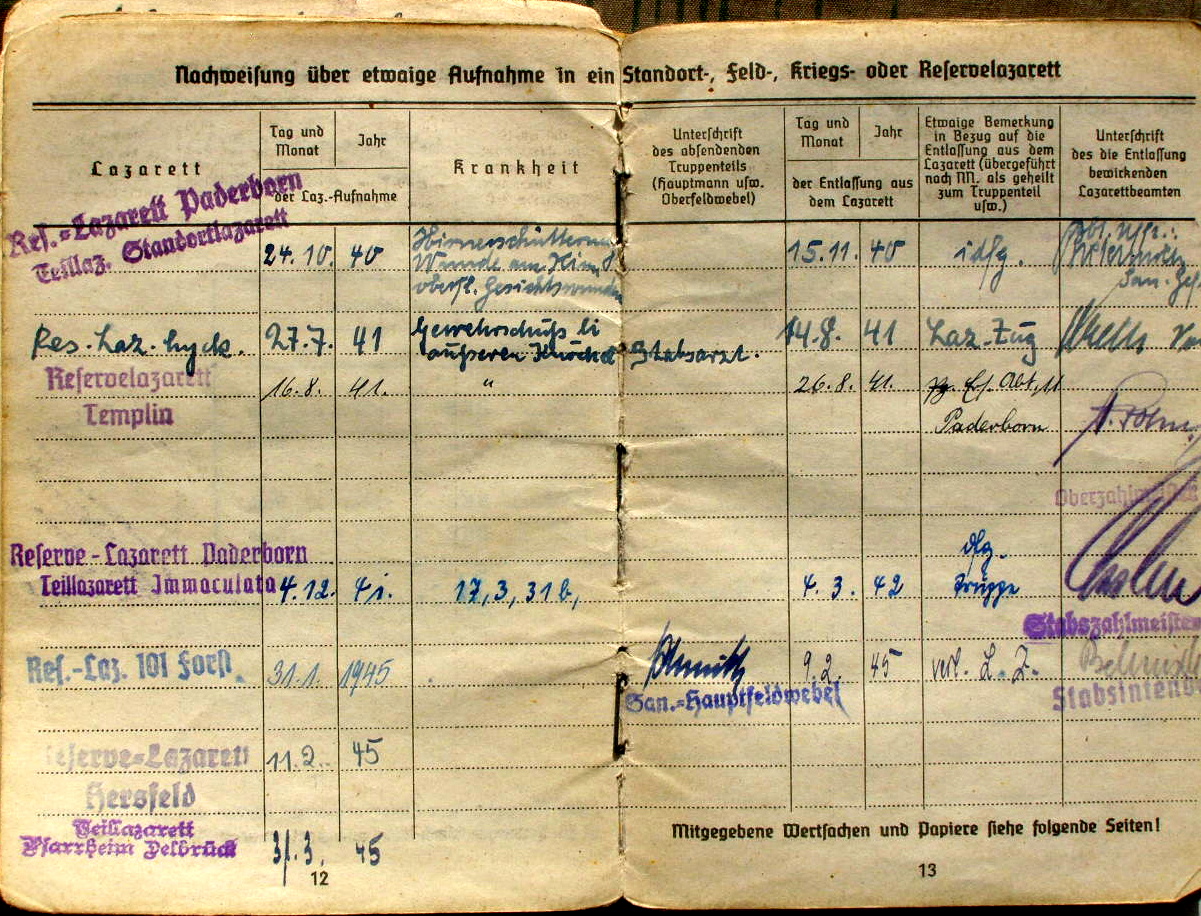 Nachweisung über etwaige Aufnahme in ein Standort-, Feld-, Kriegs- oder Reservelazarett
Lazarett
Tag und Monat
Jahr
der Laz.-Aufnahme
Krankheit
Unterschrift
des absendenden
Truppenteils
(Hauptmann usw.
Oberfeldwebel)
Tag und Monat
Jahr
der Entlassung aus
dem Lazarett
Etwaige Bemerkung
in Bezug auf die
Entlassung aus dem
Lazarett (übergeführt
nach NN. als geheilt
zum Truppenteil
usw.)
Unterschrift
des die Entlassung
bewirkenden
Lazarettbeamten
Res.-Lazarett Paderborn
Teillaz. Standortlazarett
24. 10. 40
Hirnerschütterun
Wunde am Kinn
oberfl. Gesichtswunden
15. 11. 40
Res. Laz. Lyck.
27. 7. 41
Gewehrschuß li
äußeren Knöchel
Stabsarzt.
14. 8. 41
Laz. Zug
Reservelazarett
Templin
16. 8. 41.
"
26. 8. 41.
Abt. 11
Paderborn
Oberzahlm
Reserve-Lazarett Paderborn
Teillazarett Immaculata
4. 12. 41.
17, 3, 31 b,
4. 3. 42
Truppe
Stabszahlmeister
Res.-Laz. 101 Forst.
31. 1. 1945
San.-Hauptfeldwebel
9. 2. 45
verl. L. Z.
Stabsintend
eserve-Lazarett
Hersfeld
11. 2. 45
Teillazarett
Pfarrheim Delbrück
31. 3. 45
Mitgegebene Wertsachen und Papiere siehe folgende Seiten!
12
13